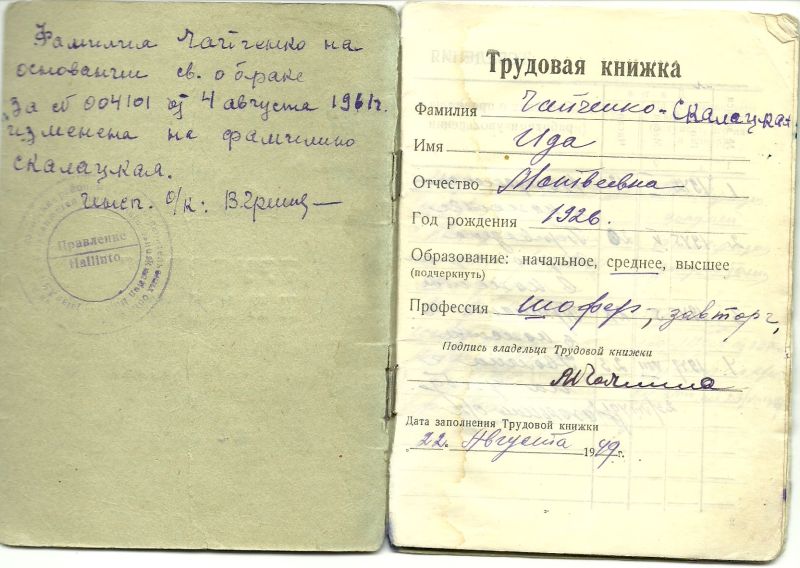 Фамилия Чайченко на
основании св. о браке
за № 004101 от 4 августа 1961г.
изменена на фамилию
Скалацкая.
Инсп. О/К:
Правление
Hallinto
Трудовая книжка
Фамилия Чайченко-Скалацкая
Имя Ида
Отчество Матвеевна
Год рождения 1926.
Образование: начальное, среднее, высшее
(подчеркнуть)
Профессия шофер, завторг,
Подпись владельца Трудовой книжки
Дата заполнения Трудовой книжки
„22" Августа 1949 г.